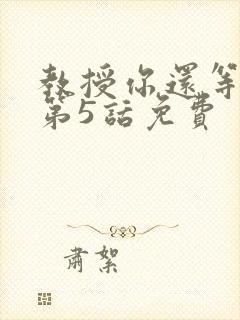 教授你還等
第5話免費
肅絮